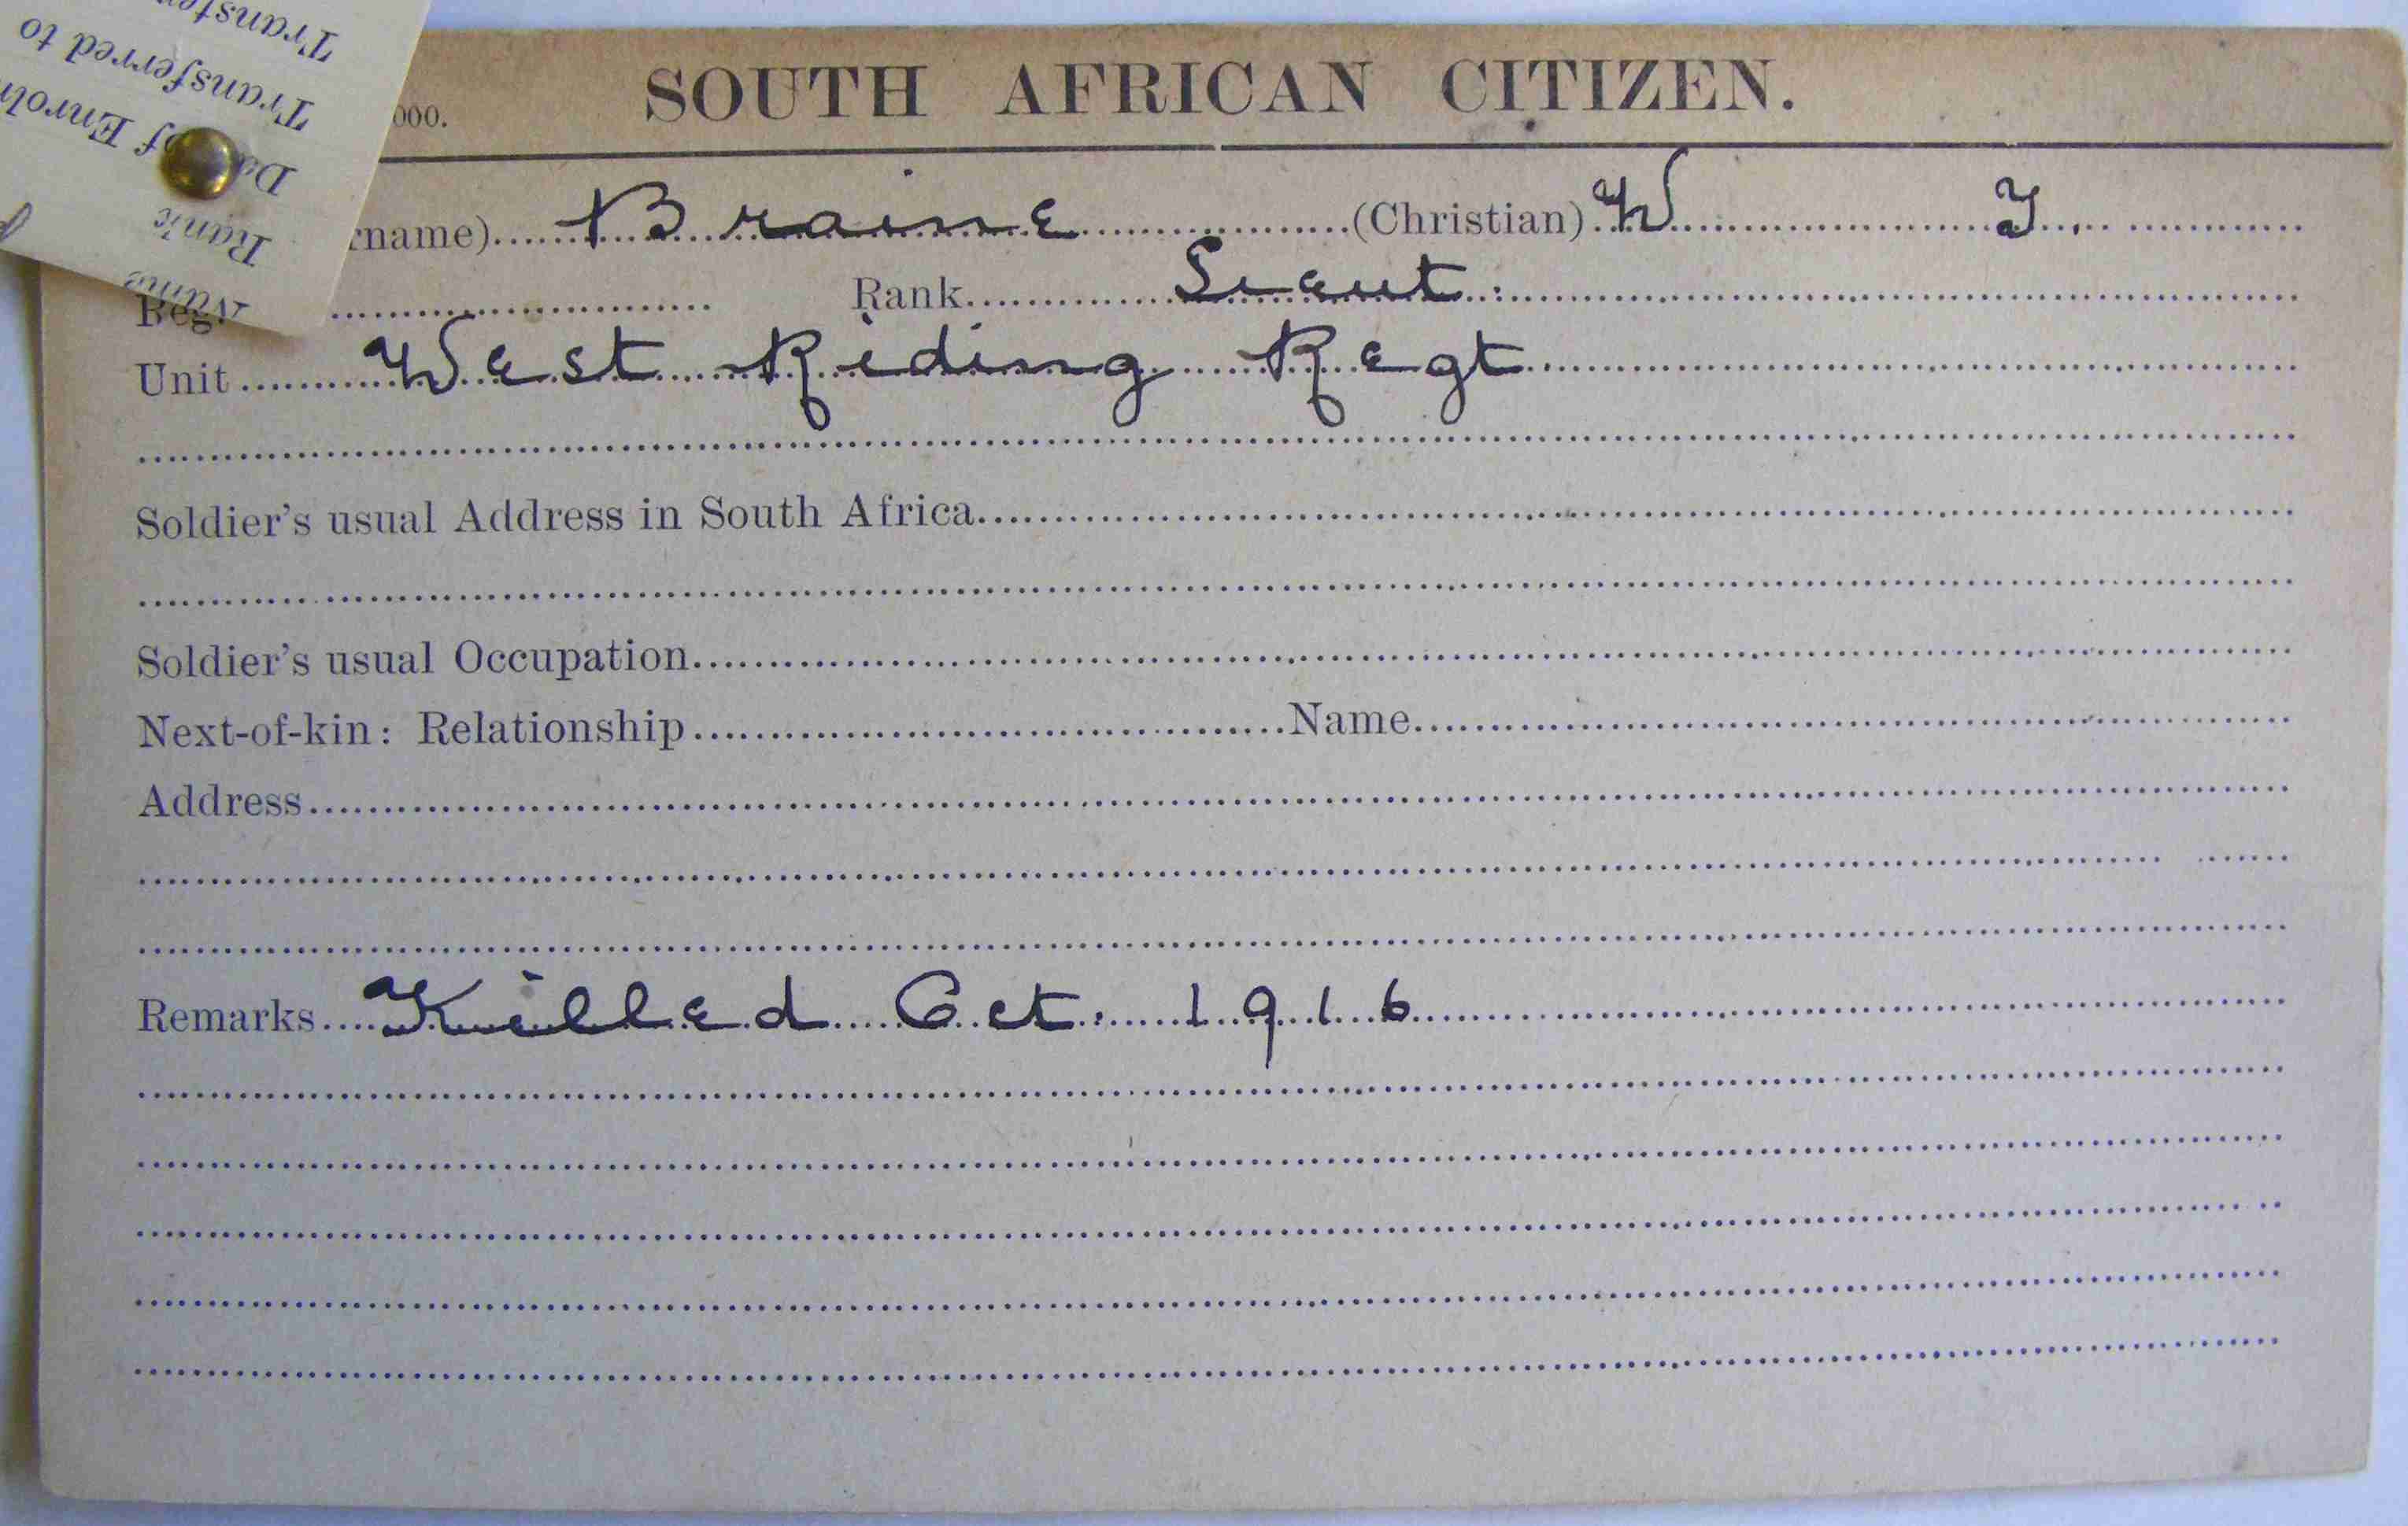 Transferred to
of Enrolm
Rank
Name
000.
SOUTH AFRICAN CITIZEN.
rname) Braine (Christian) W
Reg. Rank Lieut:
Unit West Riding Regt
Soldier's usual Address in South Africa
Soldier's usual Occupation
Next-of-kin: Relationship Name
Address
Remarks Killed Oct: 1916